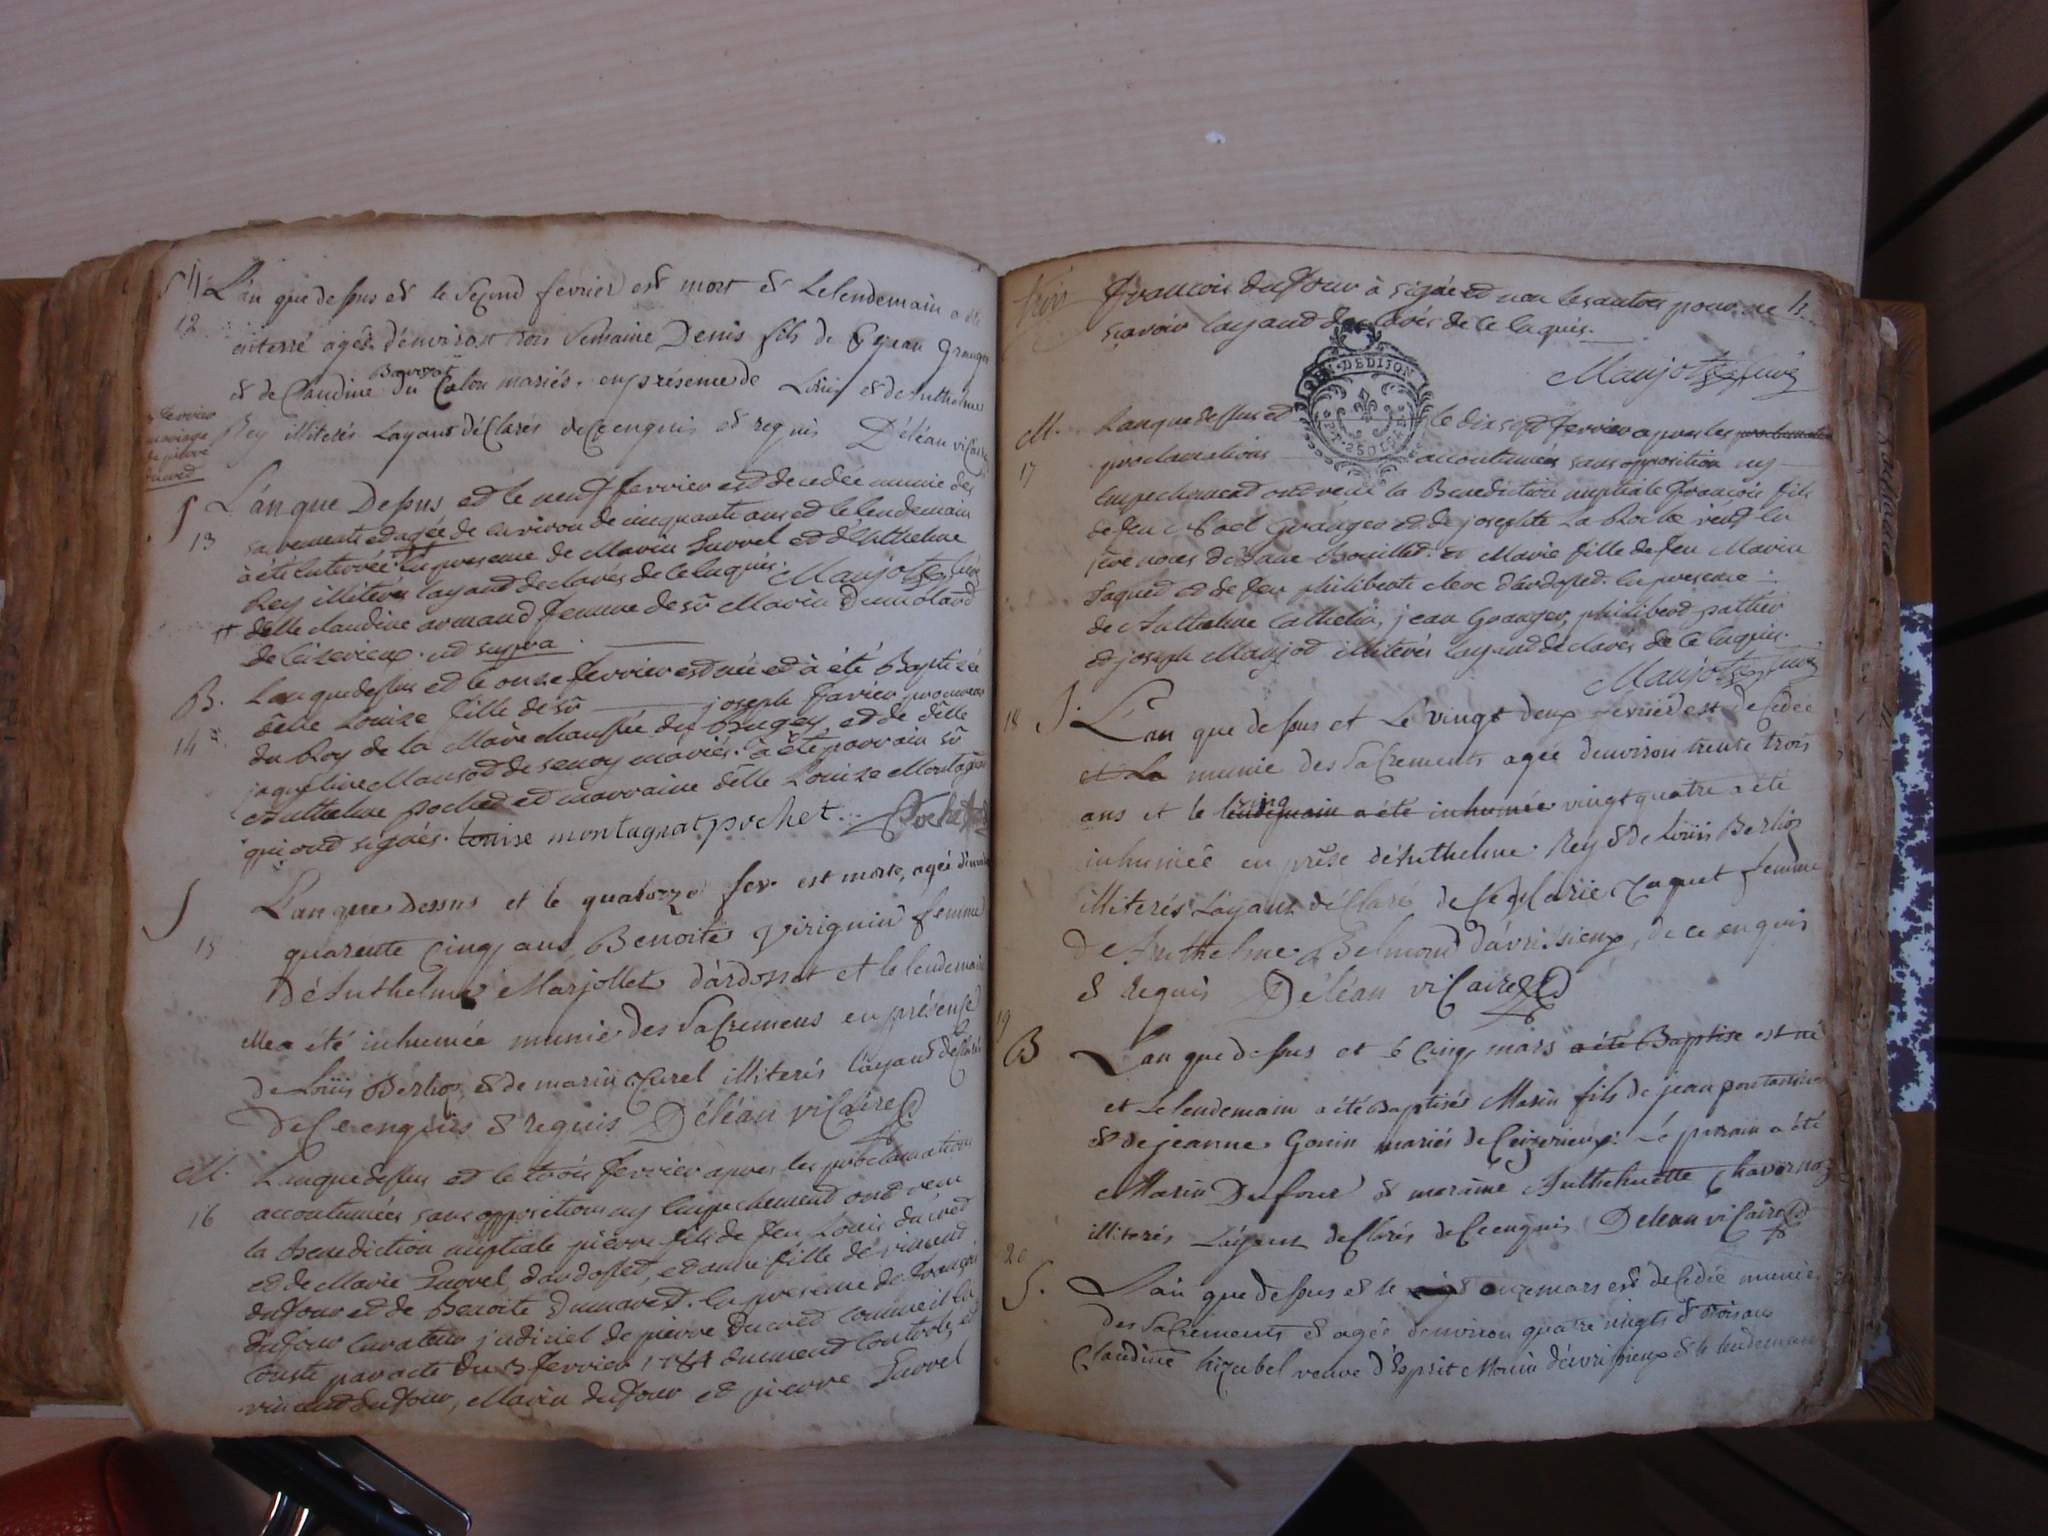 S 11 L'an que dessus et le second fevrier est mort et le lendemain a été
12 enterré agés d'environ trois semaine Denis fils de
Barizot
et de Claudine du Caton mariés. en présence de Loüis et de Anthelme
Rey illiterés layant déClarés de Ce enquis et requis Déléan viCaire
fevrier
mariage
de pierre
ducred
S L'an que Dessus et le neuf fevrier est decedée munie des
13 sacrements et agée de environ de cinquante ans et le lendemain
à été enterrée en presence de Marin Surrel et d'Anthelme
Rey illitérés layant declarés de Ce enquis. Maujot curé
delle claudine armand femme de sr Marin Dumolard
de Ceizerieux. ut supra.
B. Lan que dessus et le onze fevrier est née et à été Baptizée
delle Louize fille de sr joseph favier procureur
14 du Roy de la Marechaussée du Bugey, et de delle
jaqueline Mansod de senoy mariés. à été parrain sr
Anthelme pochet et marraine delle Louize Montagnat
qui ont signés. Louise montagnat pochet. Pochet
S L'an que Dessus et le quatorze fev. est morte, agés d'environ
15 quarente Cinq ans, Benoite viriguin femme
d'Anthelme Marjollet d'ardosset et le lendemain
elle a été inhumée munie des saCremens en présence
de Loüis Berlioz et de marin Curel illiterés layant déClarés
de Ce enquis et requis Déléan viCaire
M. Lan que dessus et le trois fevrier apres les proclamations
16 accoutumées sans opposition ny empechement ont recu
la Benediction nuptiale pierre fils de feu Louis ducred
et de Marie Surrel, dardosset, et anne fille de vincent
dufour et de Benoite Dumarest. en presence de françois
dufour Curateur judiciel de pierre Ducred comme il en
conste par acte du 3 fevrier 1784 dument controlé, et
vincent dufour, Marin dufour et pierre Surrel
françois dufour à signé et non les autres pour ne
sçavoir layant declarés de Ce enquis.
Maujot curé
GEN. DE DIJON
M. Lan que dessus et le dix sept fevrier apres les proclamations
17 proclamations accoutumées sans opposition ny
empechement ont recu la Benediction nuptiale françois fils
de feu Noel Granger et de josephte La Roche veuf en
jere noces de jane Bouillet. et Marie fille de feu Marin
jaquet et de feu philiberte clerc d'ardosset. en presence
de Anthelme Cathelin, jean Granger, philibert pathier
et joseph Maujot illitérés layant declarés de Ce enquis.
Maujot curé
18 S. L'an que dessus et Le vingt deux fevrier est deCedée
et La munie des saCrements agée denviron trente trois
ans et le lendemain a été inhumée vingt quatre a été
inhumée en prése d'Anthelme Rey et de Loüis Berlioz
illiterés Layant déClaré de Ce Marie Jaquet femme
de Anthelme Belmond d'avrissieux, de ce enquis
et requis Déléan viCaire
19
B L'an que dessus et le Cinq mars a été Baptise est né
et Le lendemain a été Baptisés Marin fils de jean pontanier
et de jeanne Gonin mariés de Ceizerieux. Le parain a été
Marin Dufour et maraine Anthelmette Chavornoz
illiterés Layant deClarés de Ce enquis Delean viCaire
20
S. L'an que dessus et le onze mars est deCedée munie
des saCrements et agée denviron quatre vingts et trois ans
Claudine hizabel veuve d'Esprit Monin d'avrissieux et le lendemain